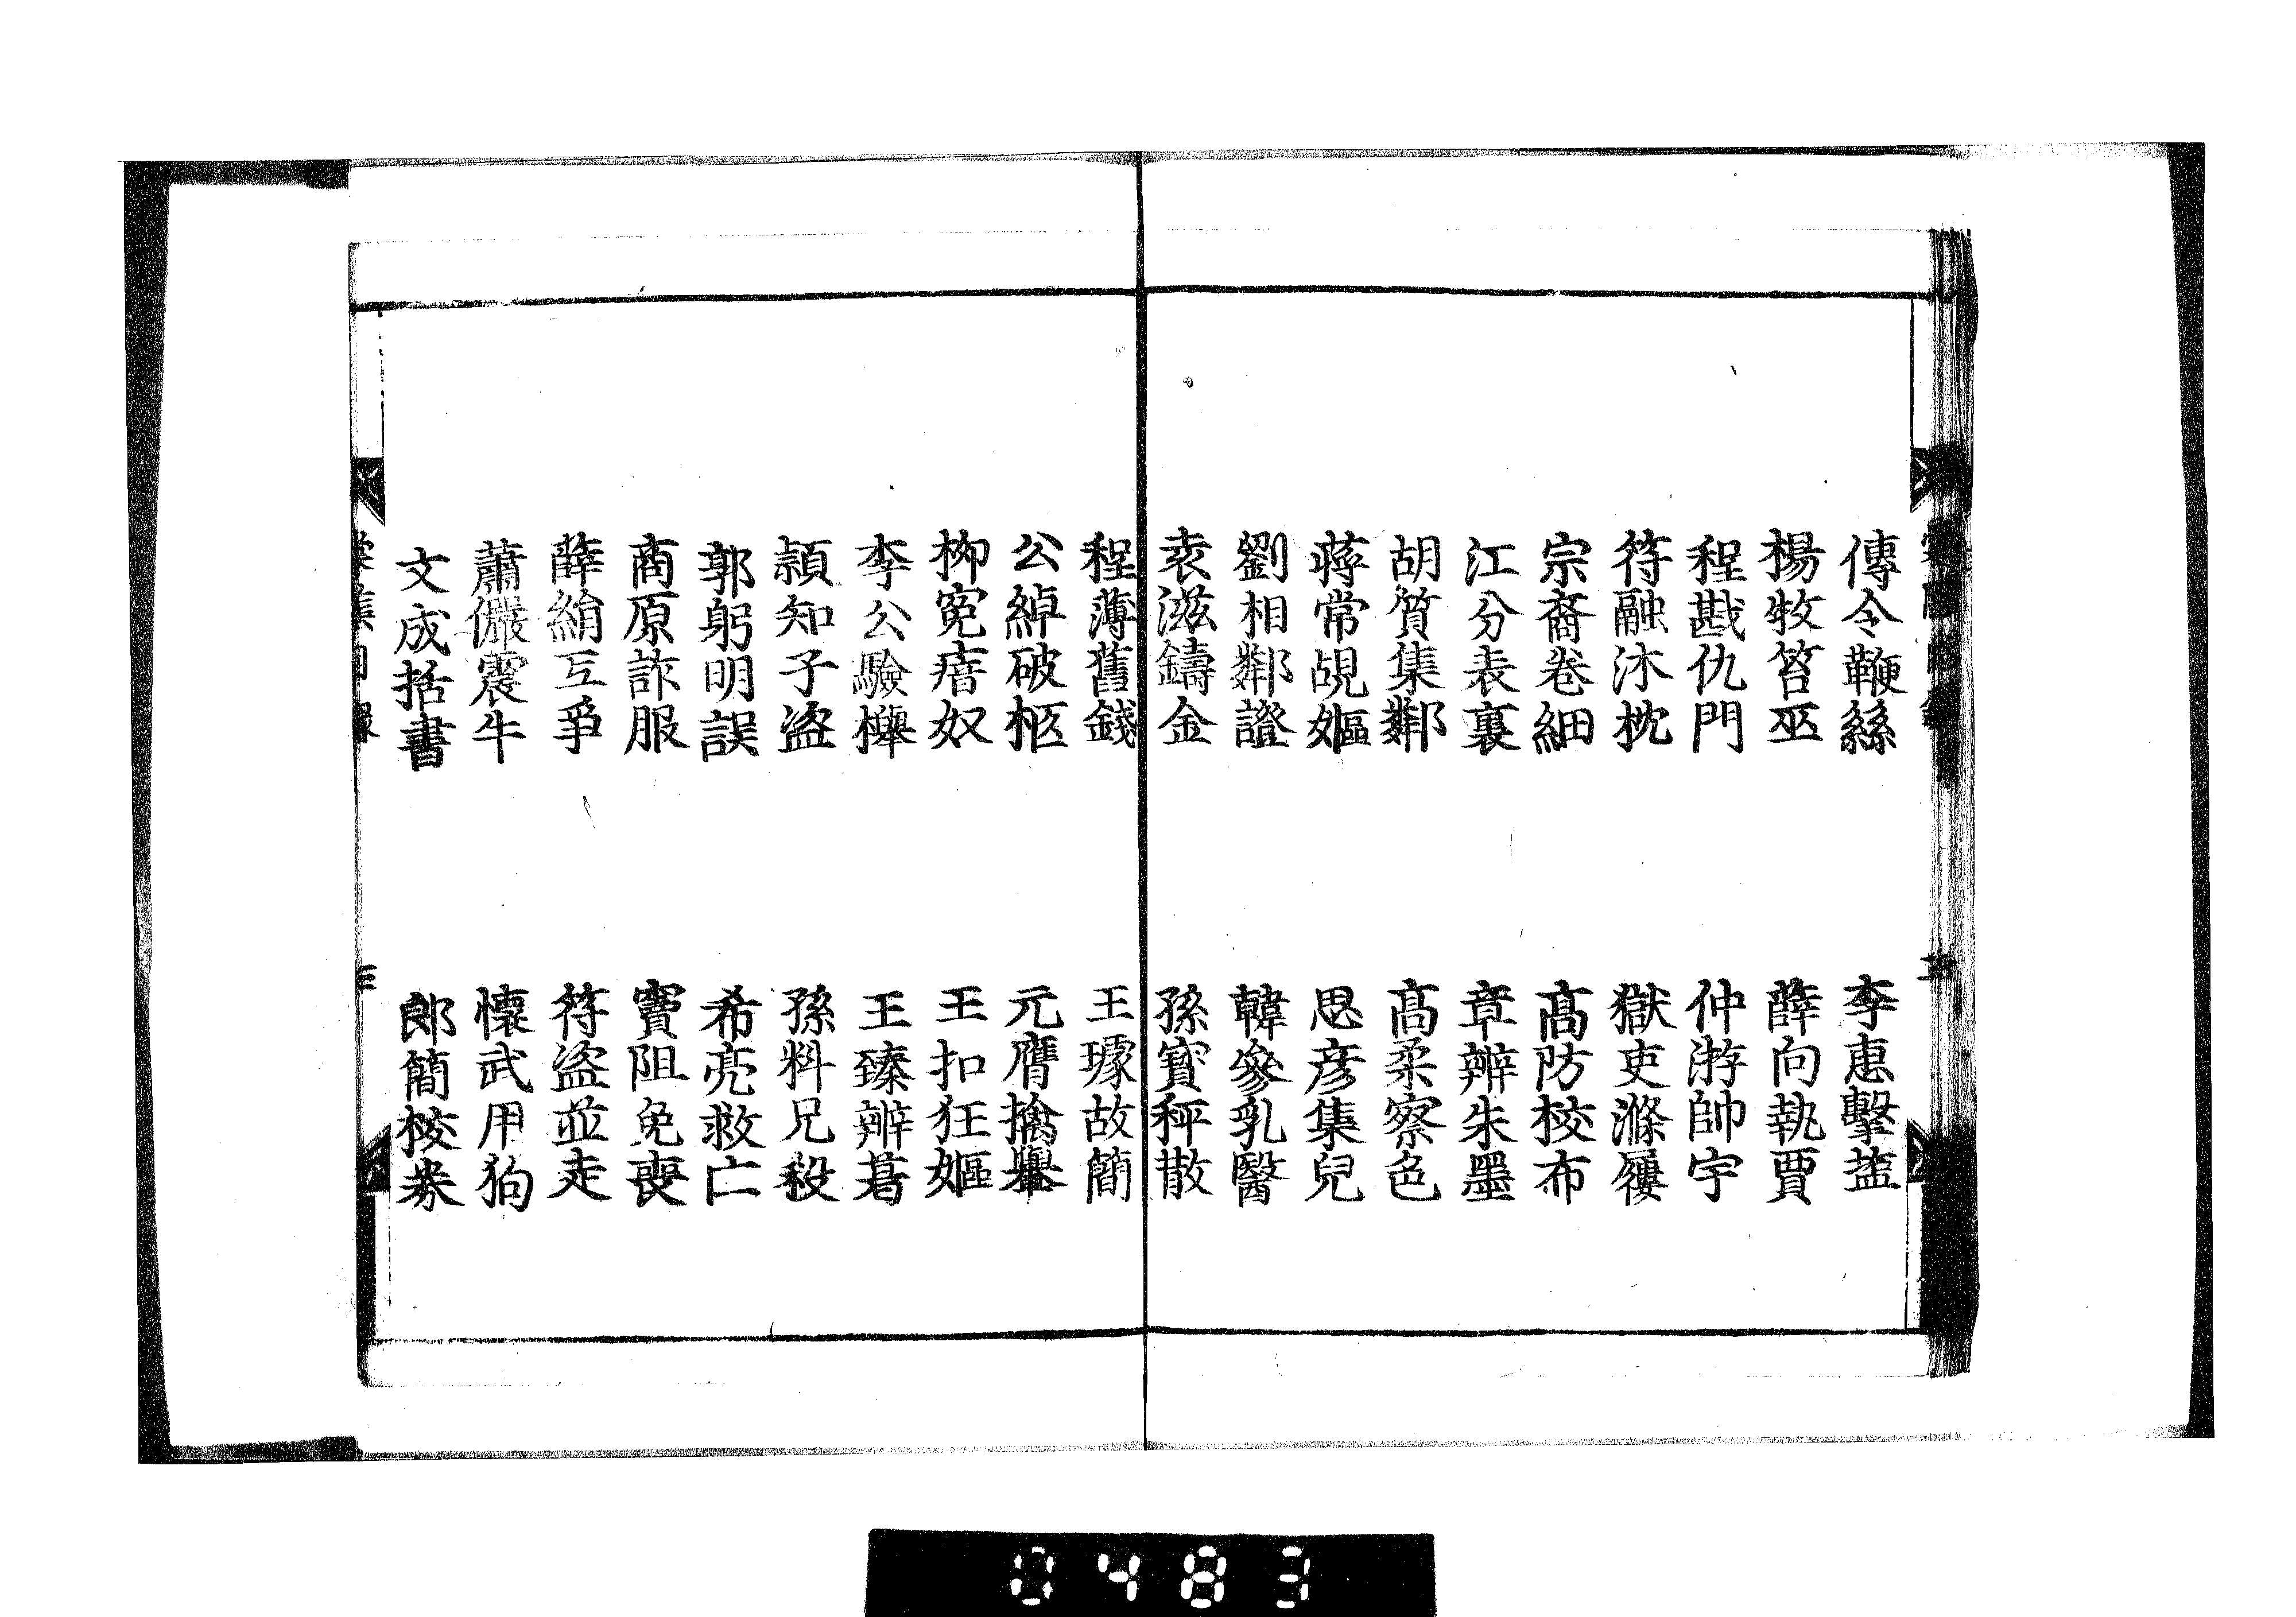 傳令鞭絲　李惠擊鹽
楊牧笞巫　薛向執賈
程戡仇門　仲游帥宇
符融沐枕　獄吏滌屨
宗裔卷細　高防校布
江分表裏　章辨朱墨
胡質集鄰　高柔察色
蔣常覘嫗　思彥集兒
劉相鄰證　韓參乳醫
袁滋鑄金　孫寶秤散
程薄舊錢　王璩故簡
公綽破柩　元膺擒轝
柳冤瘖奴　王扣狂嫗
李公驗櫸　王臻辨葛
頴知子盜　孫料兄殺
郭躬明誤　希亮救亡
商原詐服　竇阻免喪
薛絹互爭　符盜並走
蕭儼震牛　懷武用狗
文成括書　郎簡校券
三
0483